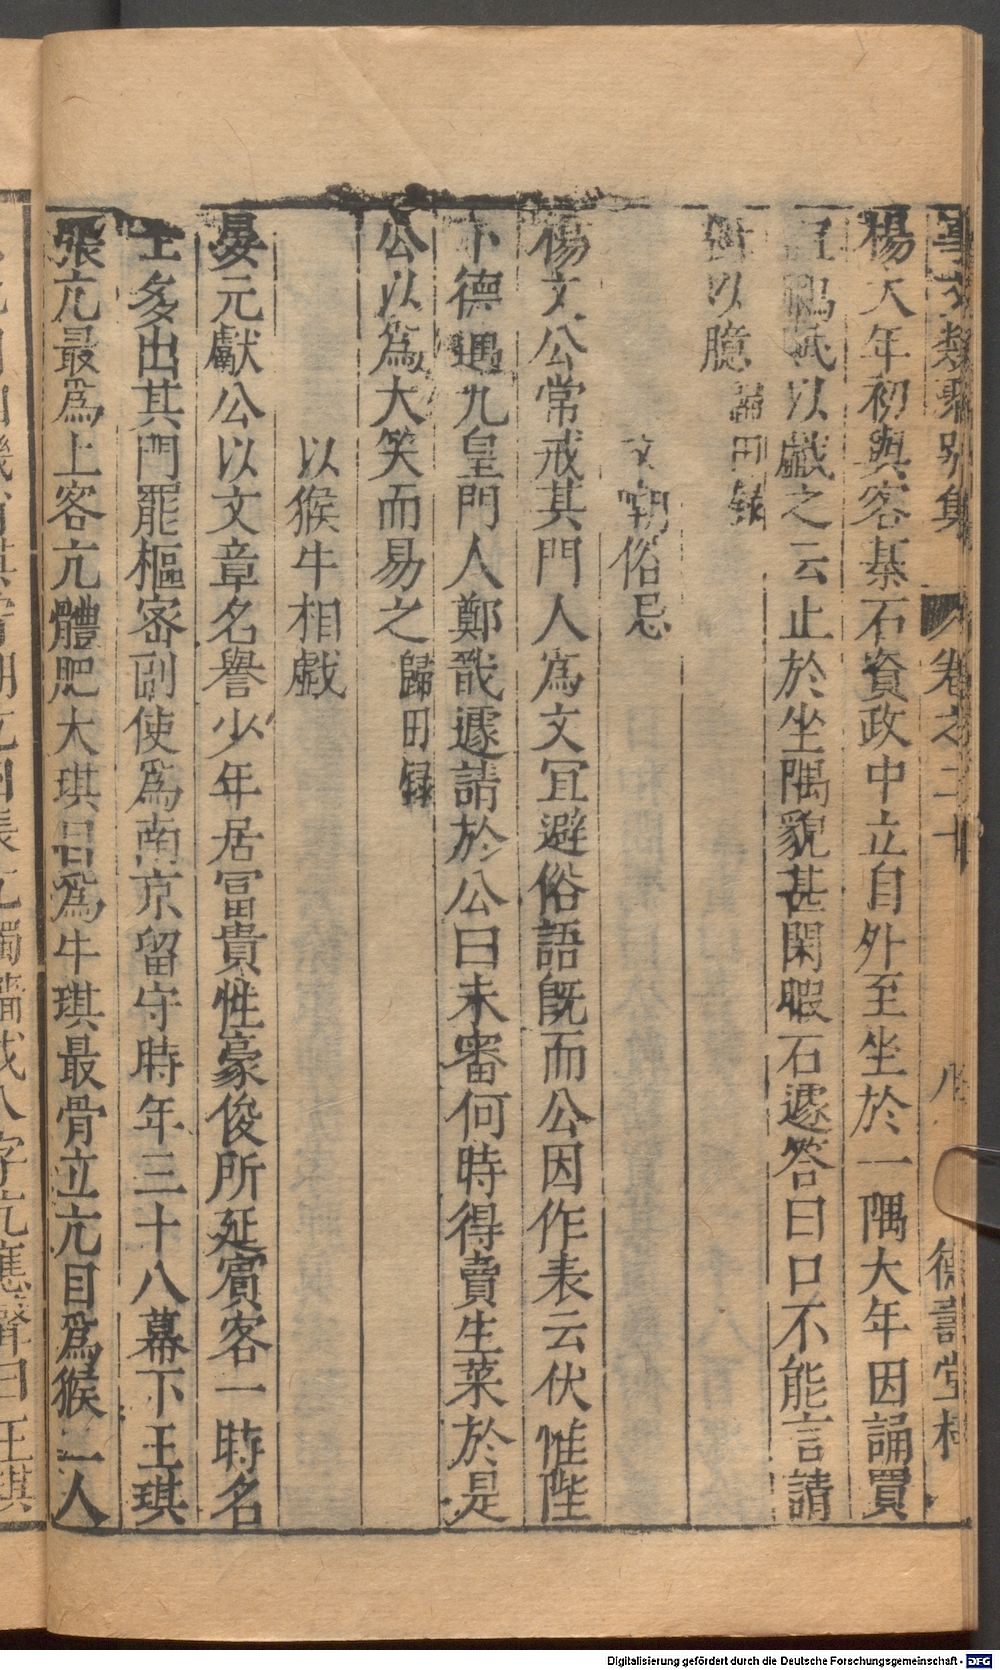 事文類聚別集 卷之二十 八 德壽堂梓
楊大年初與客棊石資政中立自外至坐於一隅大年因誦賈
誼鵩賦以戲之云止於坐隅貌甚閑暇石遽答曰口不能言請
對以臆 歸田錄
文嘲俗忌
楊文公常戒其門人為文宜避俗語旣而公因作表云伏惟陛
下德邁九皇門人鄭戩遽請於公曰未審何時得賣生菜於是
公以為大笑而易之 歸田録
以猴牛相戲
晏元獻公以文章名譽少年居冨貴性豪俊所延賓客一時名
士多出其門罷樞密副使為南京留守時年三十八幕下王琪
張亢最為上客亢體肥大琪目為牛琪最骨立亢目為猴二人
Digitalisierung gefördert durch die Deutsche Forschungsgemeinschaft - DFG